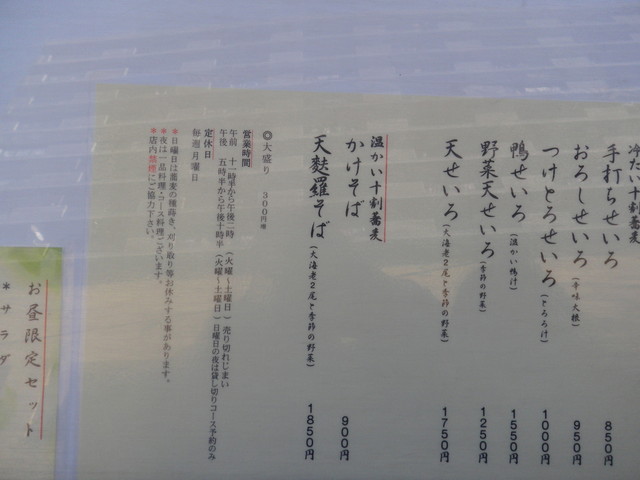 冷たい十割蕎麦
手打ちせいろ 850円
おろしせいろ(辛味大根) 950円
つけとろせいろ(とろろ汁) 1000円
鴨せいろ(温かい鴨汁) 1550円
野菜天せいろ(季節の野菜) 1250円
天せいろ(大海老2尾と季節の野菜) 1750円
温かい十割蕎麦
かけそば 900円
天麩羅そば(大海老2尾と季節の野菜) 1850円
◎大盛り 300円増
営業時間
午前 十一時半から午後二時 (火曜~土曜日) 売り切れじまい
午後 五時半から午後十時半 (火曜~土曜日) 日曜日の夜は貸し切りコース予約のみ
定休日
毎週月曜日
*日曜日は蕎麦の種蒔き、刈り取り等お休みする事があります。
*夜は一品料理・コース料理ございます。
*店内禁煙にご協力下さい。
お昼限定セット
*サラダ